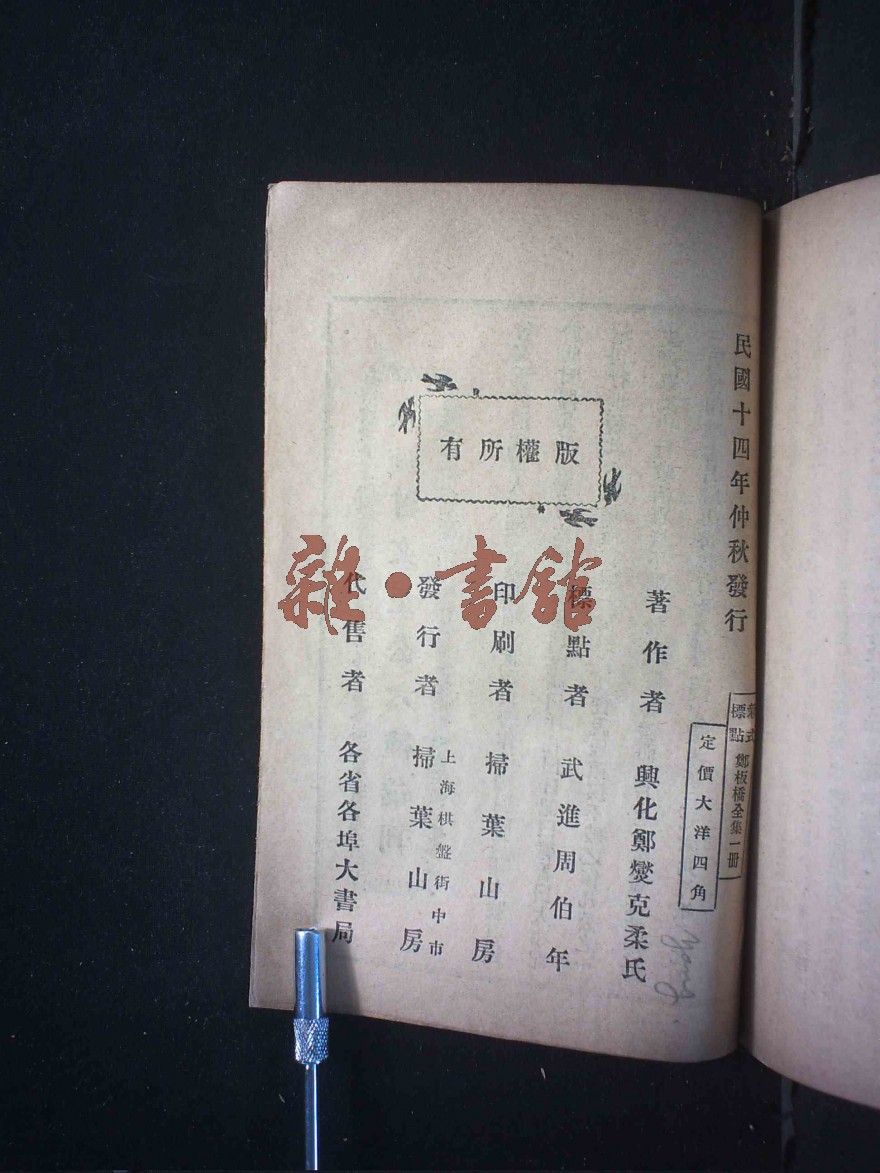 民國十四年仲秋發行
新式標點 鄭板橋全集一册
定價大洋四角
版權所有
著作者 興化鄭燮克柔氏
標點者 武進周伯年
印刷者 掃葉山房
上海棋盤街中市
發行者 掃葉山房
代售者 各省各埠大書局
雜·書館